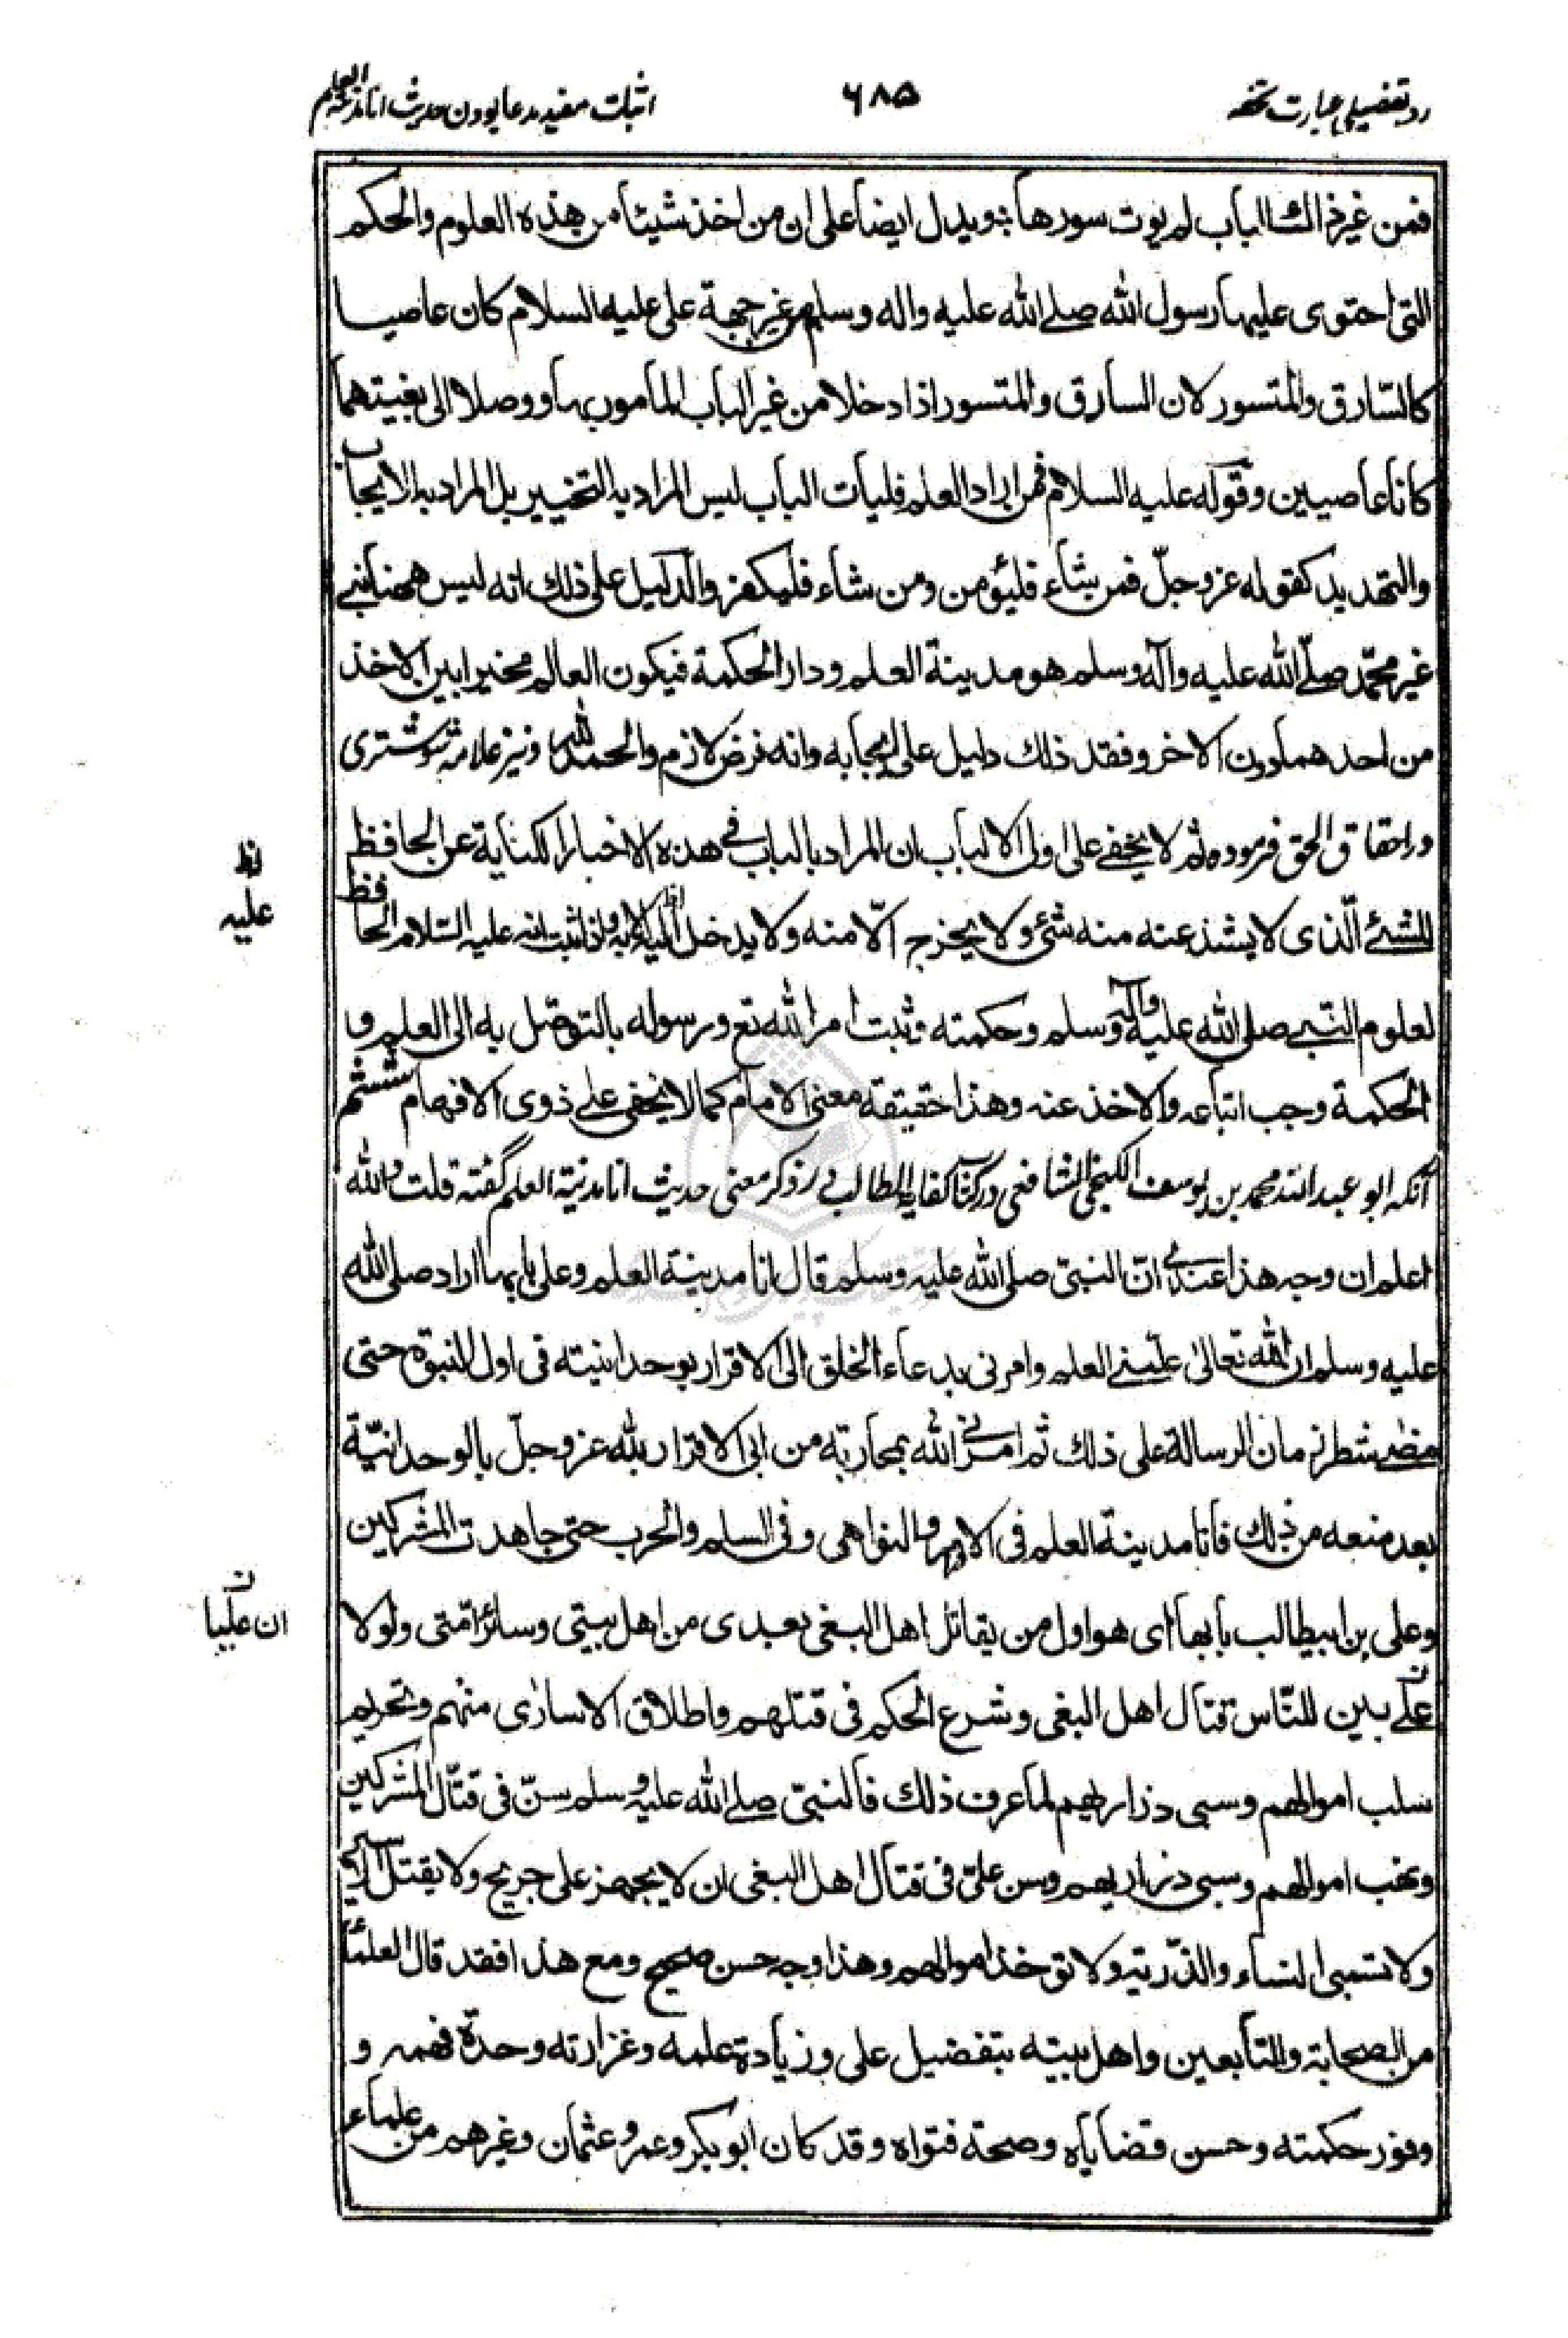 رد تفصیلی عبارت تحفه ۶۸۵ اثبات مفید مدعا بودن حدیث انا مدینة العلم
فمن غير ذالك الباب لم يوت سورها ويدل ايضا على ان من اخذ شيئا من هذه العلوم والحكم
التى احتوى عليها رسول الله صلى الله عليه واله وسلم من غير جهة على عليه السلام كان عاصيا
كالسّارق والمتسور لان السارق والمتسور اذا دخلا من غير الباب المامور بها ووصلا الى بغيتهما
كانا عاصيين وقوله عليه السلام فمن اراد العلم فليات الباب ليس المراد به التخيير بل المراد به الايجاب
والتهديد كقوله عز وجلّ فمن شاء فليؤمن ومن شاء فليكفر والدليل على ذلك انه ليس ههنا نبى
غير محمّد صلّى الله عليه وآله وسلم هو مدينة العلم ودار الحكمة فيكون العالم مخيرا بين الاخذ
من احدهما دون الاخر وفقد ذلك دليل على ايجابه وانه فرض لازم والحمد لله ونيز علامۀ شوشترى
در احقاق الحق فرموده ثم لا يخفى على اولى الالباب ان المراد بالباب فى هذه الاخبار الكناية عن الحافظ
للشئ الّذى لا يشذ عنه منه شئ ولا يخرج الّا منه ولا يدخل اليه الا به واذا ثبت انه عليه السّلام الحافظ
لعلوم النبى صلى الله عليه وآله وسلم وحكمته وثبت امر الله تع ورسوله بالتوصل به الى العلم و
الحكمة وجب اتباعه والاخذ عنه وهذا حقيقة معنى الامام كما لا يخفى على ذوى الافهام ششم
آنكه ابو عبد الله محمد بن يوسف الكنجى الشافعى در كتاب كفاية الطالب در ذكر معنى حديث انا مدينة العلم گفته قلت والله
اعلم ان وجه هذا عندى انّ النبىّ صلى الله عليه وسلم قال انا مدينة العلم وعلى بابها اراد صلى الله
عليه وسلم ان الله تعالى علمنى العلم وامرنى بدعاء الخلق الى الاقرار بوحدانيته فى اول النبوة حتى
مضى شطر زمان الرسالة على ذلك ثم امرنى الله بمحاربة من ابى الاقرار لله عز وجلّ بالوحدانيّة
بعد منعه من ذلك فانا مدينة العلم فى الاوامر والنواهى وفى السلم والحرب حتى جاهدت المشركين
وعلى بن ابيطالب بابها اى هو اول من يقاتل اهل البغى بعدى من اهل بيتى وسائر امّتى ولولا
علىّ بين للنّاس قتال اهل البغى وشرع الحكم فى قتلهم واطلاق الاسارى منهم وتحريم
سلب اموالهم وسبى ذراريهم لما عرف ذلك فالنبىّ صلى الله عليه وسلم سنّ فى قتال المشركين
ونهب اموالهم وسبى ذراريهم وسن علىّ فى قتال اهل البغى ان لا يجهز على جريح ولا يقتل اسير
ولا تسبى النساء والذّرية ولا تؤخذ اموالهم وهذا وجه حسن صحيح ومع هذا فقد قال العلماء
من الصحابة والتابعين واهل بيته بتفضيل على وزيادة علمه وغزارته وحدّة فهمه و
وفور حكمته وحسن قضاياه وصحة فتواه وقد كان ابوبكر وعمر وعثمان وغيرهم من علماء
عليه
ان عليا